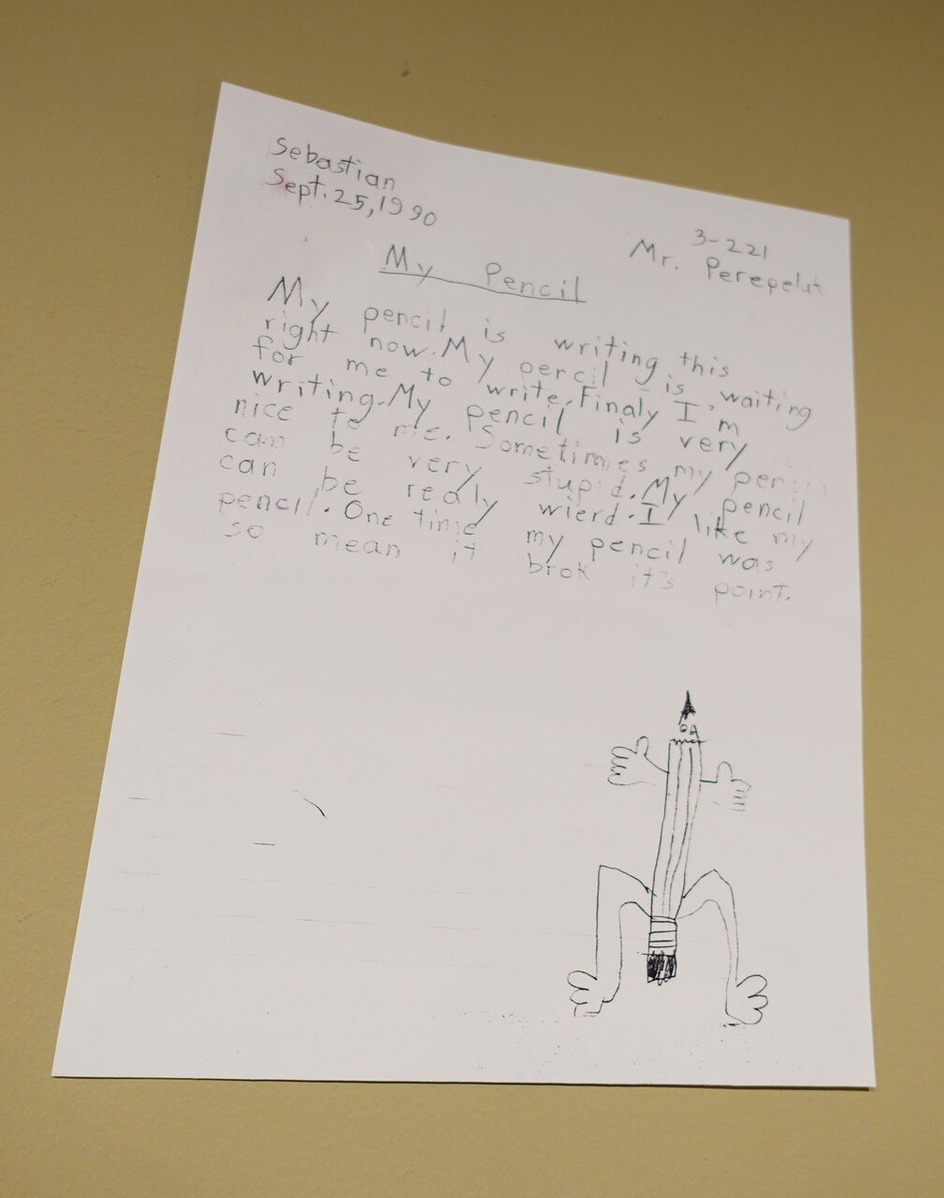 Sebastian
Sept. 25, 1990
3-221
Mr. Perepelut
My Pencil
My pencil is writing this
right now. My percil is waiting
for me to write. Finaly I'm
writing. My pencil is very
nice to me. Sometimes my
can be very stupid. My pencil
can be realy wierd. I like my
pencil. One time my pencil was
so mean it brok it's point.